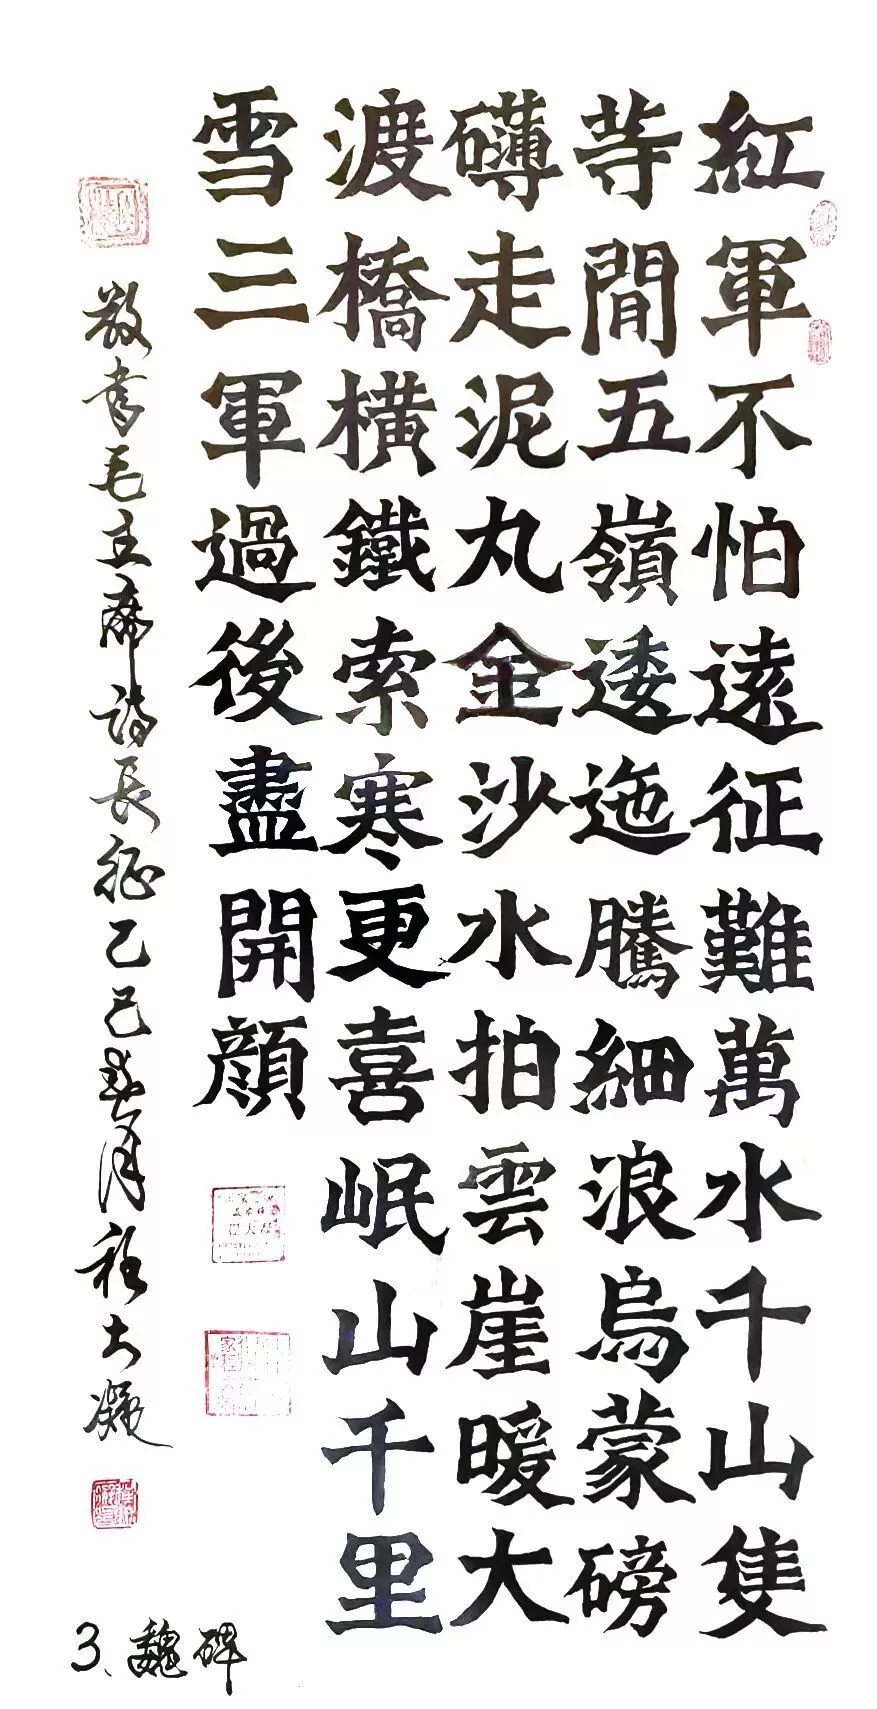 紅軍不怕遠征難萬水千山隻
等閒五嶺逶迤騰細浪烏蒙磅
礴走泥丸金沙水拍雲崖暖大
渡橋橫鐵索寒更喜岷山千里
雪三軍過後盡開顔
敬書毛主席詩長征乙巳春月程大凝
3、魏碑